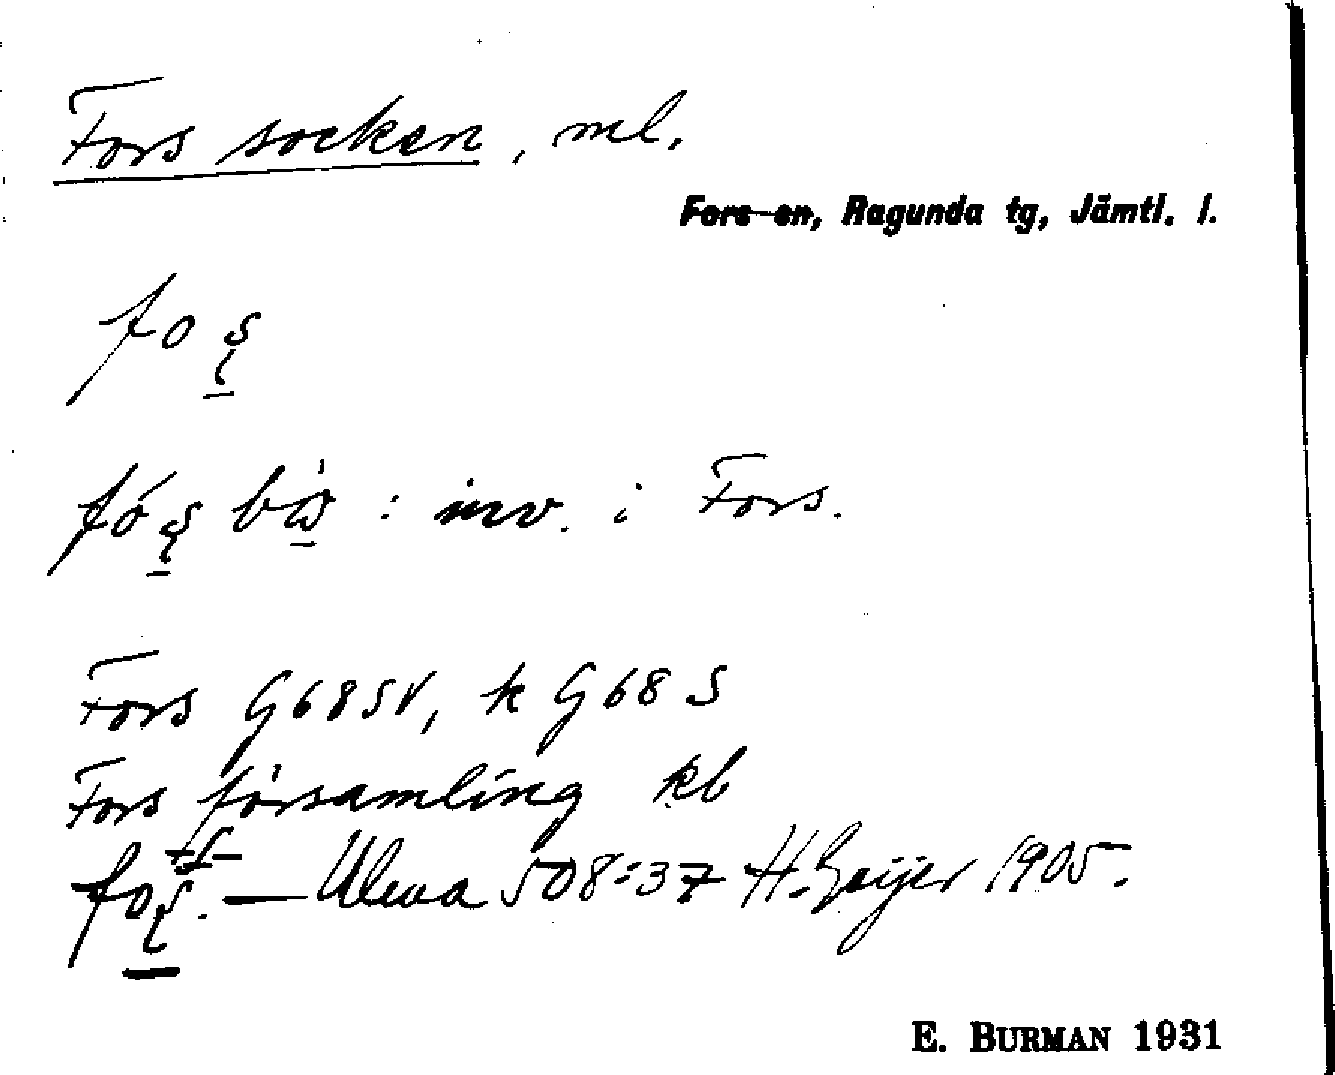 Fors socken, ml.
Fors sn, Ragunda tg, Jämtl. l.
foş
fóş : inv. i Fors.
Fors G68SV, k G68S
Fors församling kb
foş. — Uleva 508:37 H. Geijer 1905.
E. BURMAN 1931